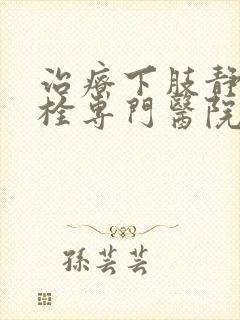 治療下肢靜
栓專門醫院
孫芸芸